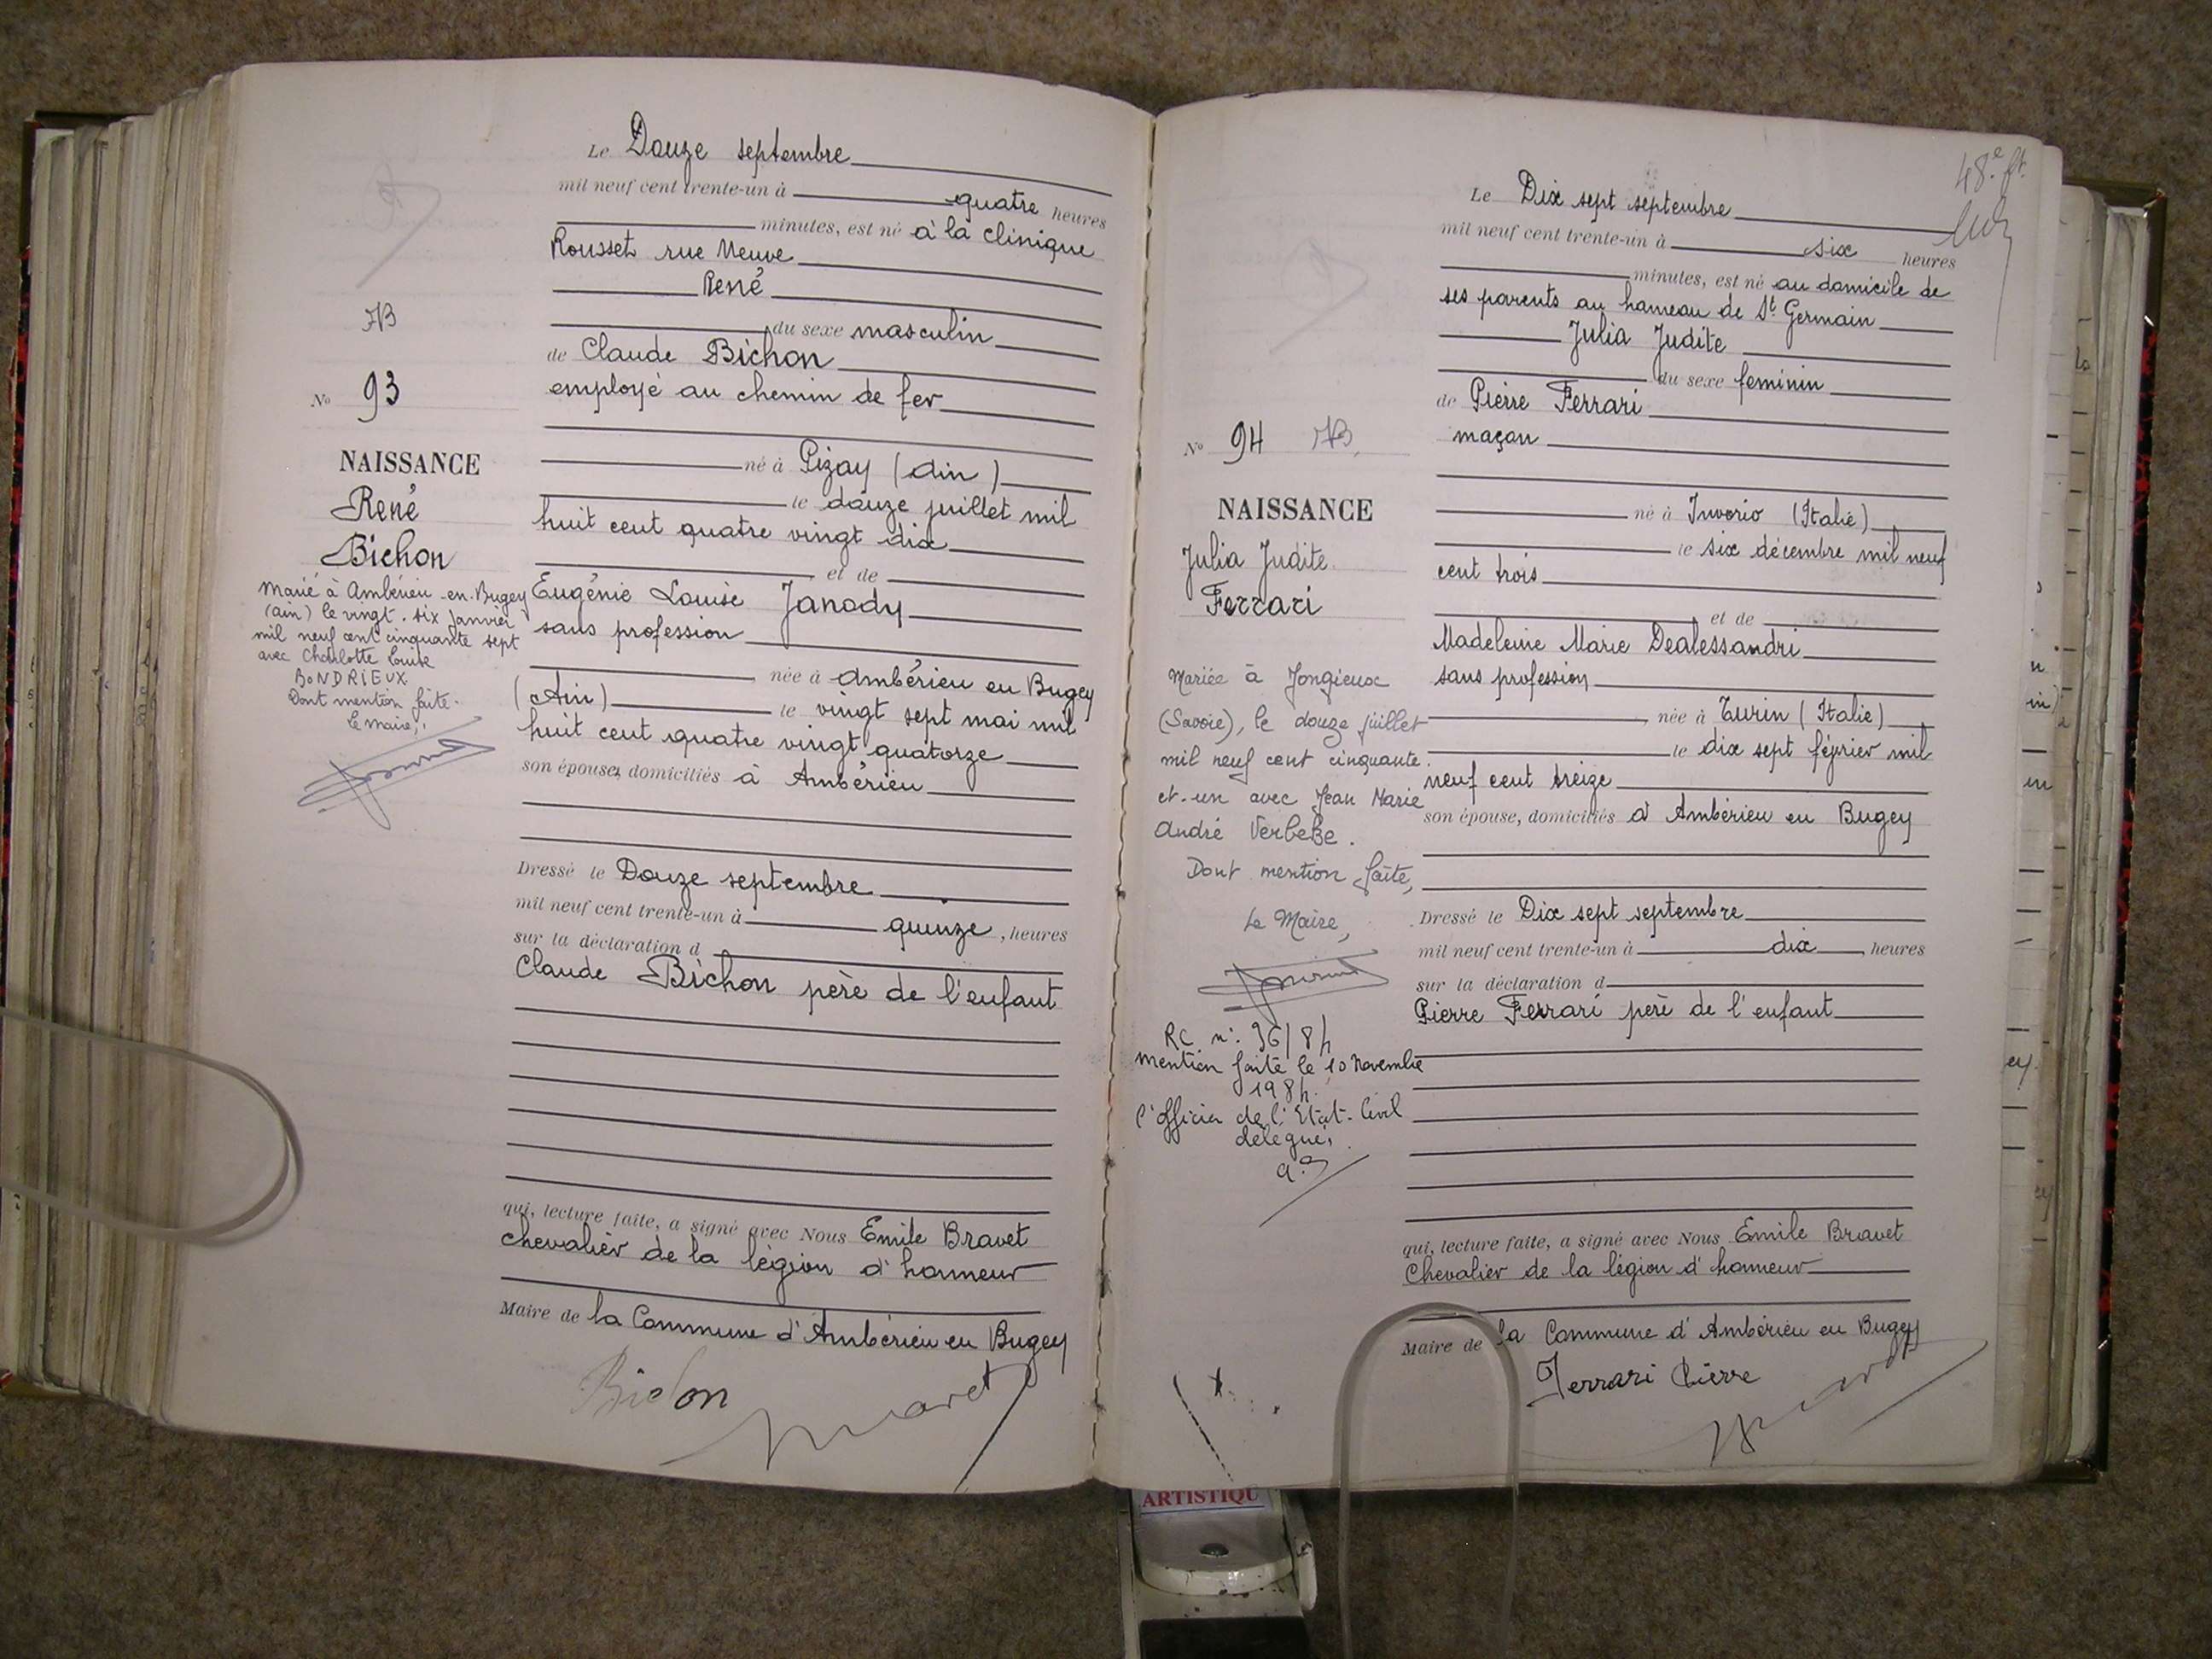 Le Douze septembre
mil neuf cent trente-un à quatre heures
minutes, est né à la clinique
Rousset rue Neuve
René
du sexe masculin
de Claude Bichon
employé au chemin de fer
né à Pizay (Ain)
le douze juillet mil
huit cent quatre vingt dix
et de
Eugénie Louise Janody
sans profession
née à Ambérieu en Bugey
(Ain) le vingt sept mai mil
huit cent quatre vingt quatorze
son épouse, domiciliés à Ambérieu
Dressé le Douze septembre
mil neuf cent trente-un à quinze, heures
sur la déclaration d
Claude Bichon père de l'enfant
qui, lecture faite, a signé avec Nous Emile Bravet
Chevalier de la légion d'honneur
Maire de la Commune d'Ambérieu en Bugey
Bichon
N° 93
NAISSANCE
René
Bichon
Marié à Ambérieu-en-Bugey
(Ain) le vingt-six Janvier
mil neuf cent cinquante sept
avec Charlotte Louise
BONDRIEUX
Dont mention faite.
Le Maire,
48e ft.
Le Dix sept septembre
mil neuf cent trente-un à six heures
minutes, est né au domicile de
ses parents au hameau de St Germain
Julia Judite
du sexe feminin
de Pierre Ferrari
maçon
né à Invorio (Italie)
le six décembre mil neuf
cent trois
et de
Madeleine Marie Dealessandri
sans profession
née à Turin (Italie)
le dix sept février mil
neuf cent treize
son épouse, domiciliés à Ambérieu en Bugey
Dressé le Dix sept septembre
mil neuf cent trente-un à dix, heures
sur la déclaration d
Pierre Ferrari père de l'enfant
qui, lecture faite, a signé avec Nous Emile Bravet
Chevalier de la légion d'honneur
Maire de la Commune d'Ambérieu en Bugey
Ferrari Pierre
N° 94
NAISSANCE
Julia Judite
Ferrari
Mariée à Jongieux
(Savoie), le douze juillet
mil neuf cent cinquante-
et-un avec Jean Marie
André
Dont mention faite,
Le Maire,
RC n° 96/84
mention faite le 10 Novembre
1984.
l'officier de l'Etat-Civil
délégué,
ARTISTIQU